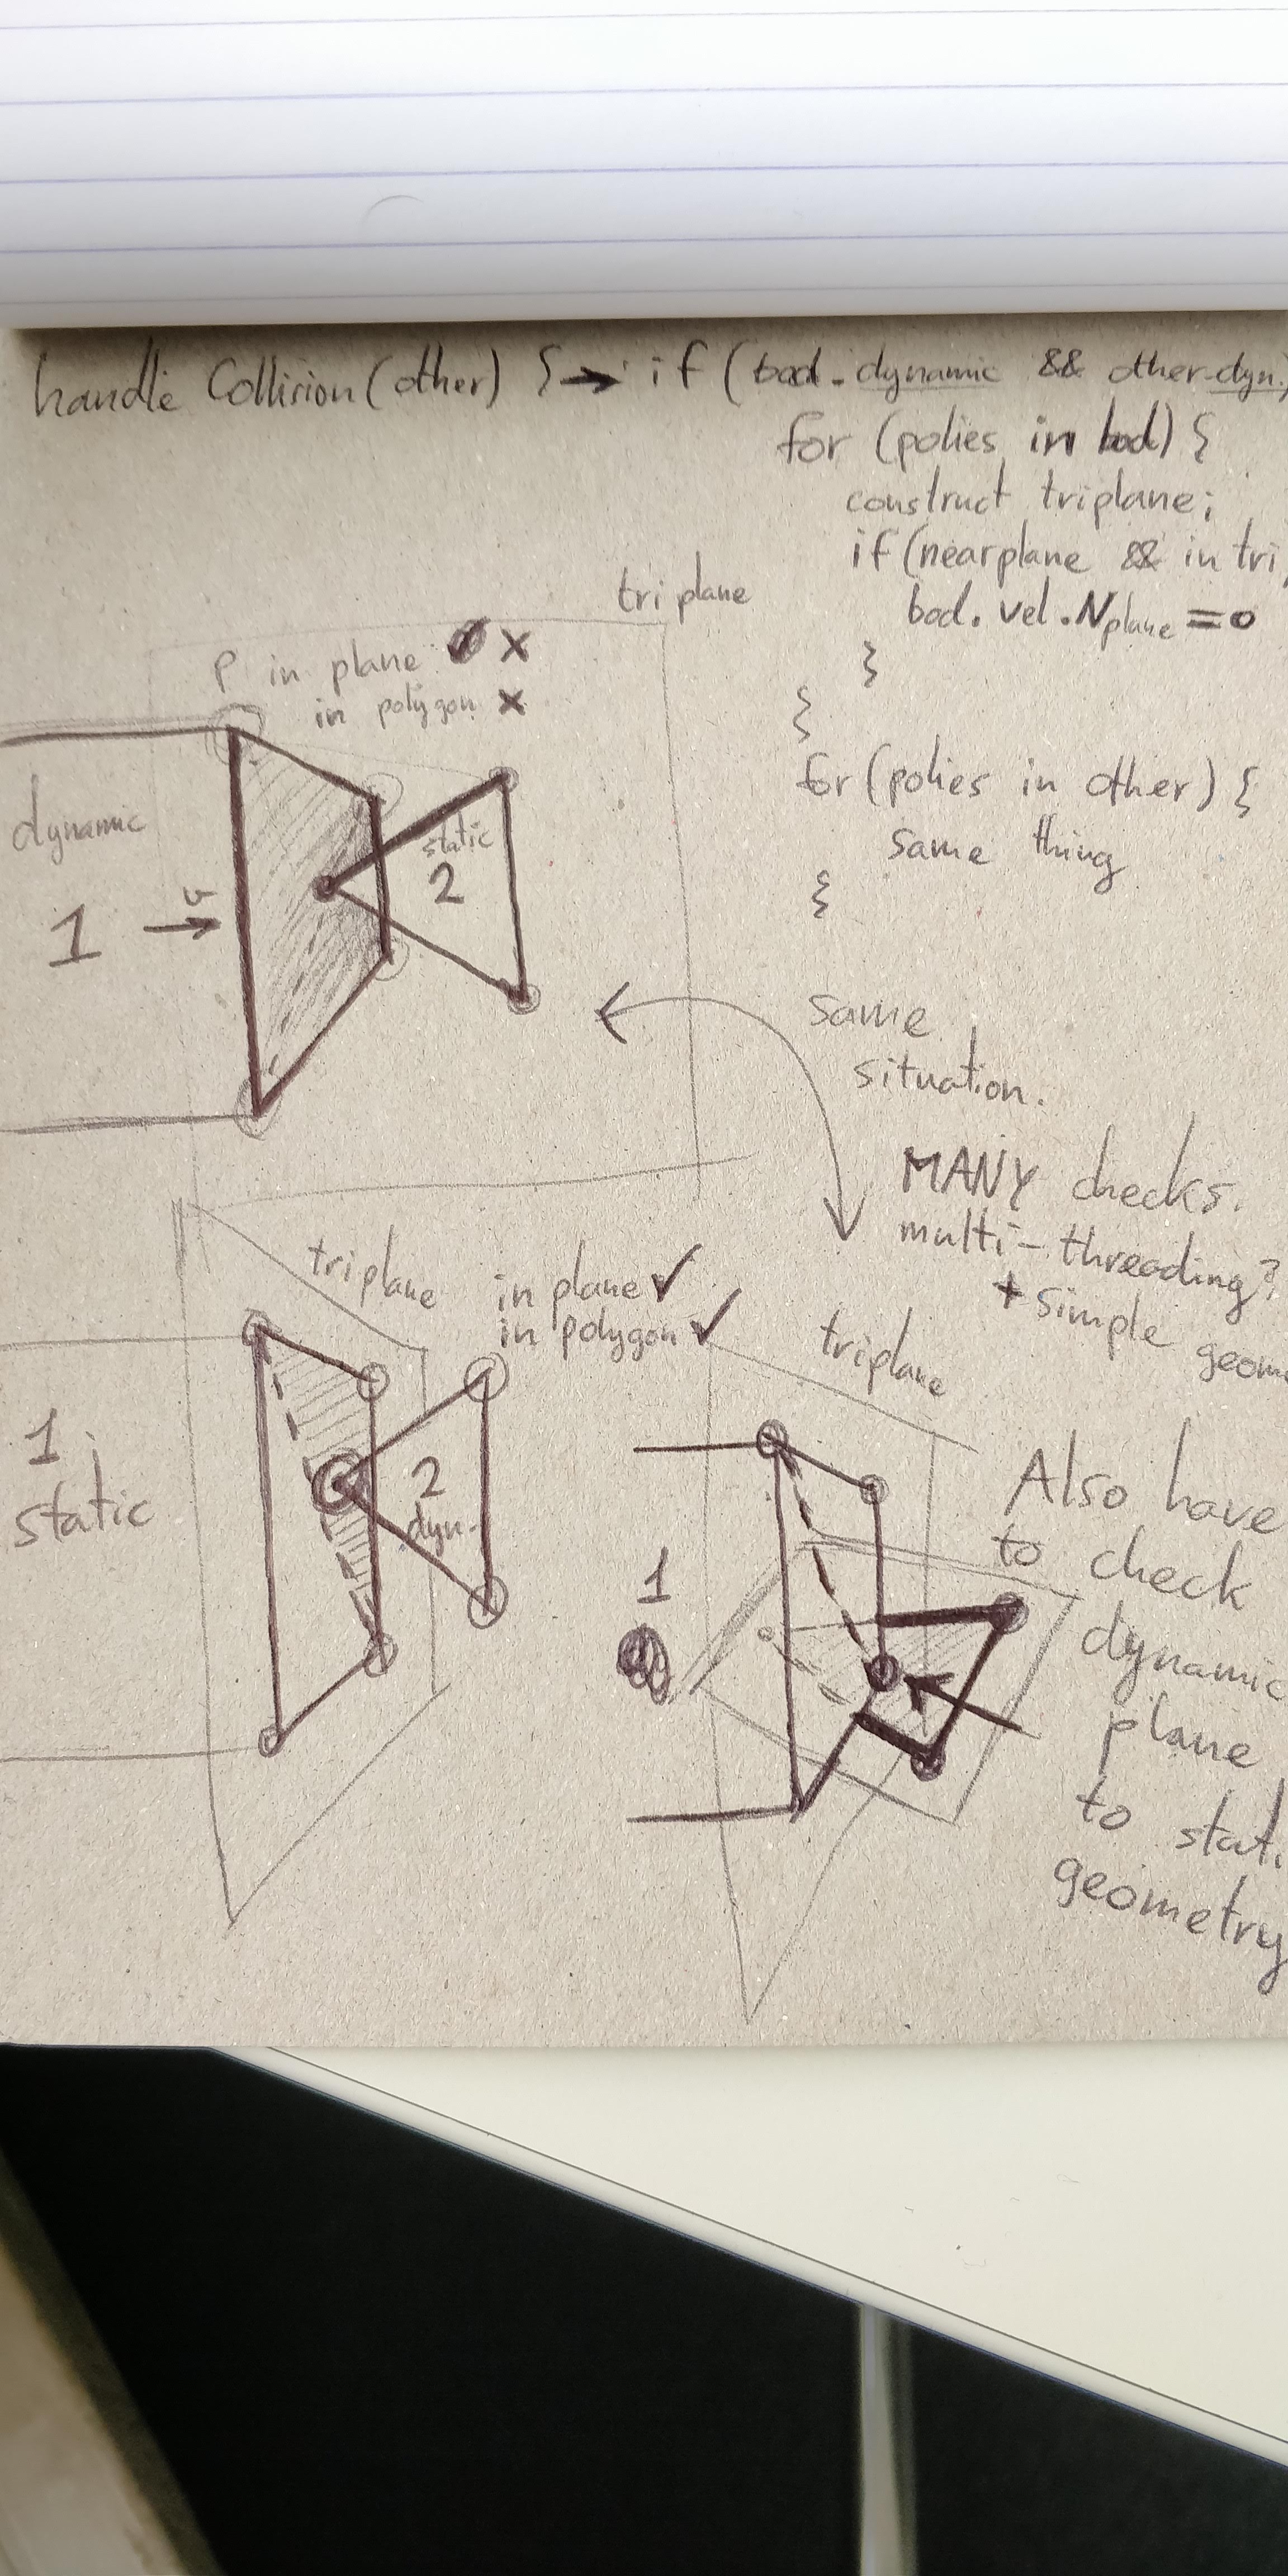 handle Collision(other) { → if (bod.dynamic && other.dyn.
for (polies in bod) {
construct triplane;
if (nearplane && in tri
bod. vel . Nplane = 0
}
}
for (polies in other) {
same thing
}
triplane
P in plane x
in polygon x
dynamic
1 → v
static
2
same
situation.
MANY checks.
multi-threading?
+ simple geom
triplane
in plane ✓
in polygon ✓
1
static
2
dyn.
triplane
1
Also have
to check
dynamic
plane
to stati
geometry